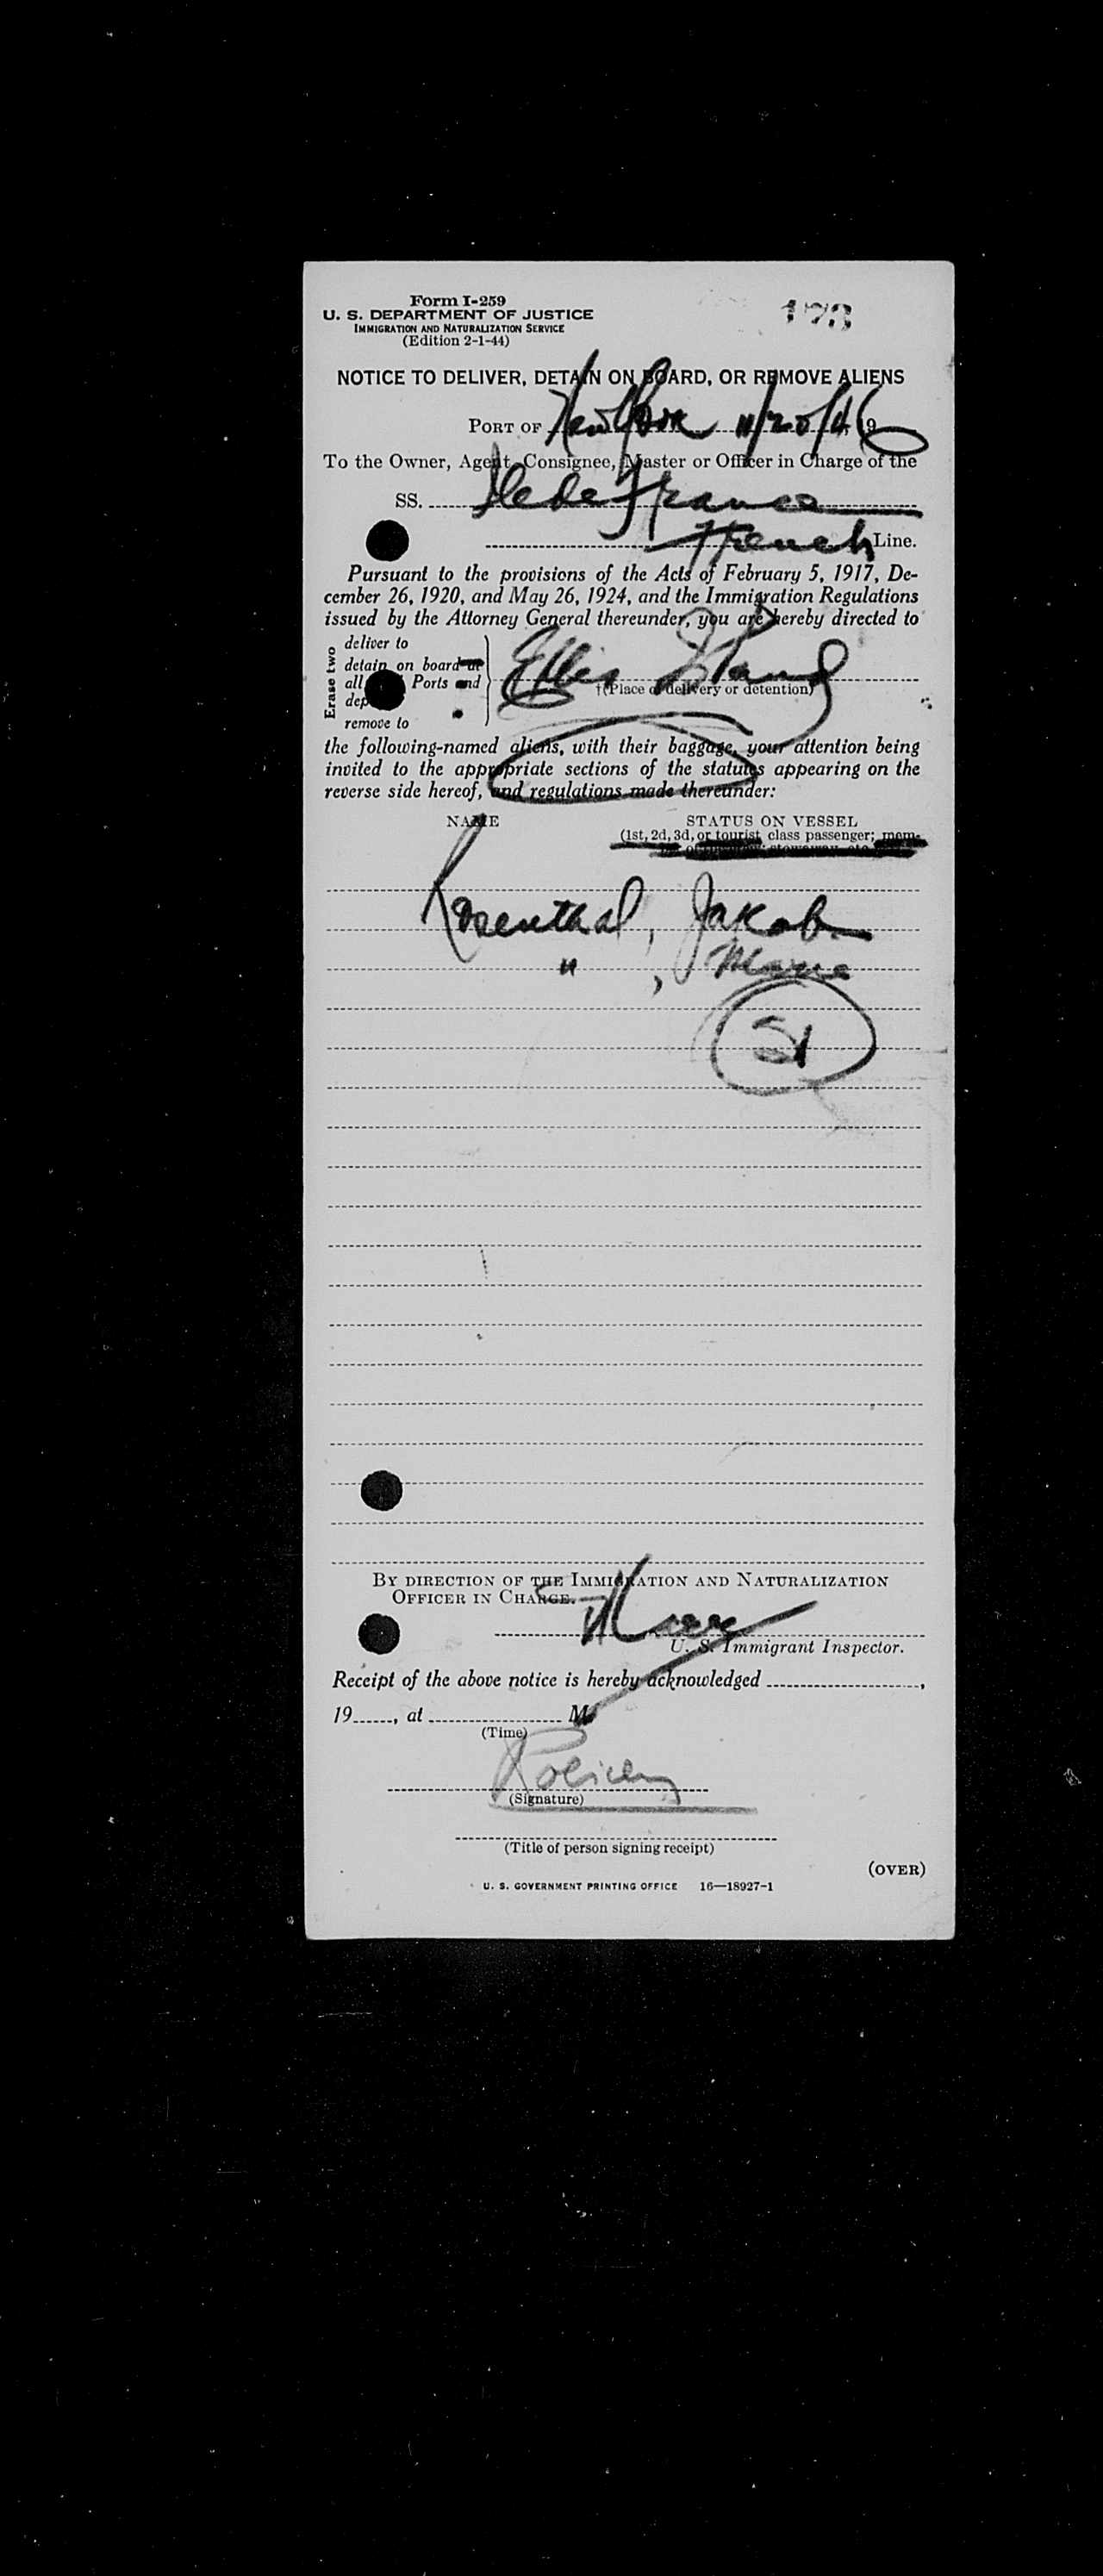 Form I-259
U. S. DEPARTMENT OF JUSTICE
IMMIGRATION AND NATURALIZATION SERVICE
(Edition 2-1-44)
178
NOTICE TO DELIVER, DETAIN ON BOARD, OR REMOVE ALIENS
PORT OF New York 11/20/46, 19
To the Owner, Agent, Consignee, Master or Officer in Charge of the
SS. Ile de France
French Line.
Pursuant to the provisions of the Acts of February 5, 1917, De-
cember 26, 1920, and May 26, 1924, and the Immigration Regulations
issued by the Attorney General thereunder, you are hereby directed to
Erase two
deliver to
detain on board at
all Ports and
dep
remove to
Ellis Island
†(Place of delivery or detention)
the following-named aliens, with their baggage, your attention being
invited to the appropriate sections of the statutes appearing on the
reverse side hereof, and regulations made thereunder:
NAME STATUS ON VESSEL
(1st, 2d, 3d, or tourist class passenger; mem-
Rosenthal, Jakob
" , Marie
SI
BY DIRECTION OF THE IMMIGRATION AND NATURALIZATION
OFFICER IN CHARGE.
U. S. Immigrant Inspector.
Receipt of the above notice is hereby acknowledged ,
19 , at M
(Time)
(Signature)
(Title of person signing receipt)
(OVER)
U. S. GOVERNMENT PRINTING OFFICE 16—18927-1